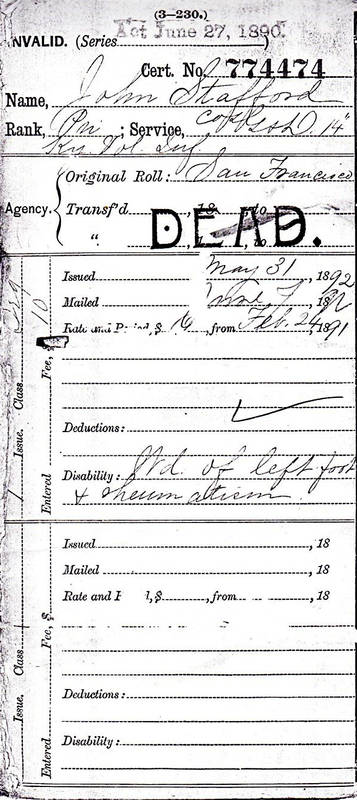 (3—230.)
Act June 27, 1890.
INVALID. (Series )
Cert. No. 774474
Name, John Stafford
Rank, Pri ; Service, Co D. 14"
Ky Vol Inf
Agency.
Original Roll: San Francisco
Transf'd , 18 , to
" , to
DEAD.
Issued May 31, 1892
Mailed June 7, 1892
Rate and Period, $ 16, from Feb. 24, 1891
Deductions:
Disability: Wd. of left foot
& rheumatism.
Issue. Class
Entered Fee, $ 10
Issued , 18
Mailed , 18
Rate and P d, $ , from , 18
Deductions:
Disability:
Issue. Class
Entered Fee, $